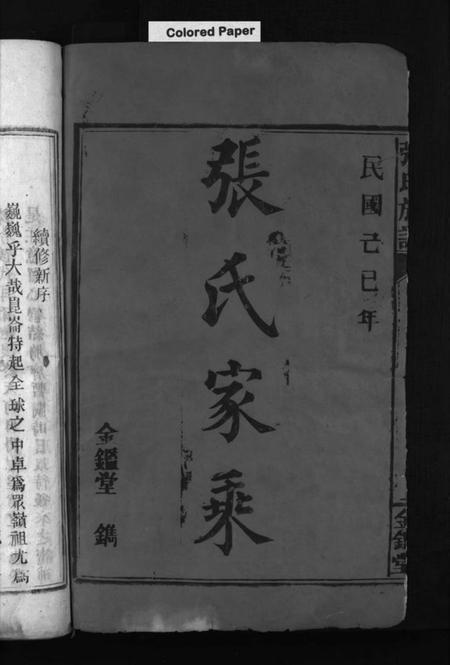 Colored Paper
民國己巳年
張氏家乘
金鑑堂 鐫
張氏族譜
金鑑堂
續修新序
巍巍乎大哉崑崙特起全球之中卓爲眾嶺祖尤爲